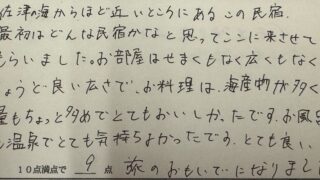 佐津の海からほど近いところにあるこの民宿.
最初はどんな民宿かなと思ってここに来させて
もらいました。お部屋はせまくもなく広くもなく
ょうど良い広さで、お料理は、海産物が多く
量もちょっと多めでとてもおいしかったです。お風呂
温泉でとても気持ちよかったです。とても良い
10点満点で 9 点 旅のおもいでになりまし